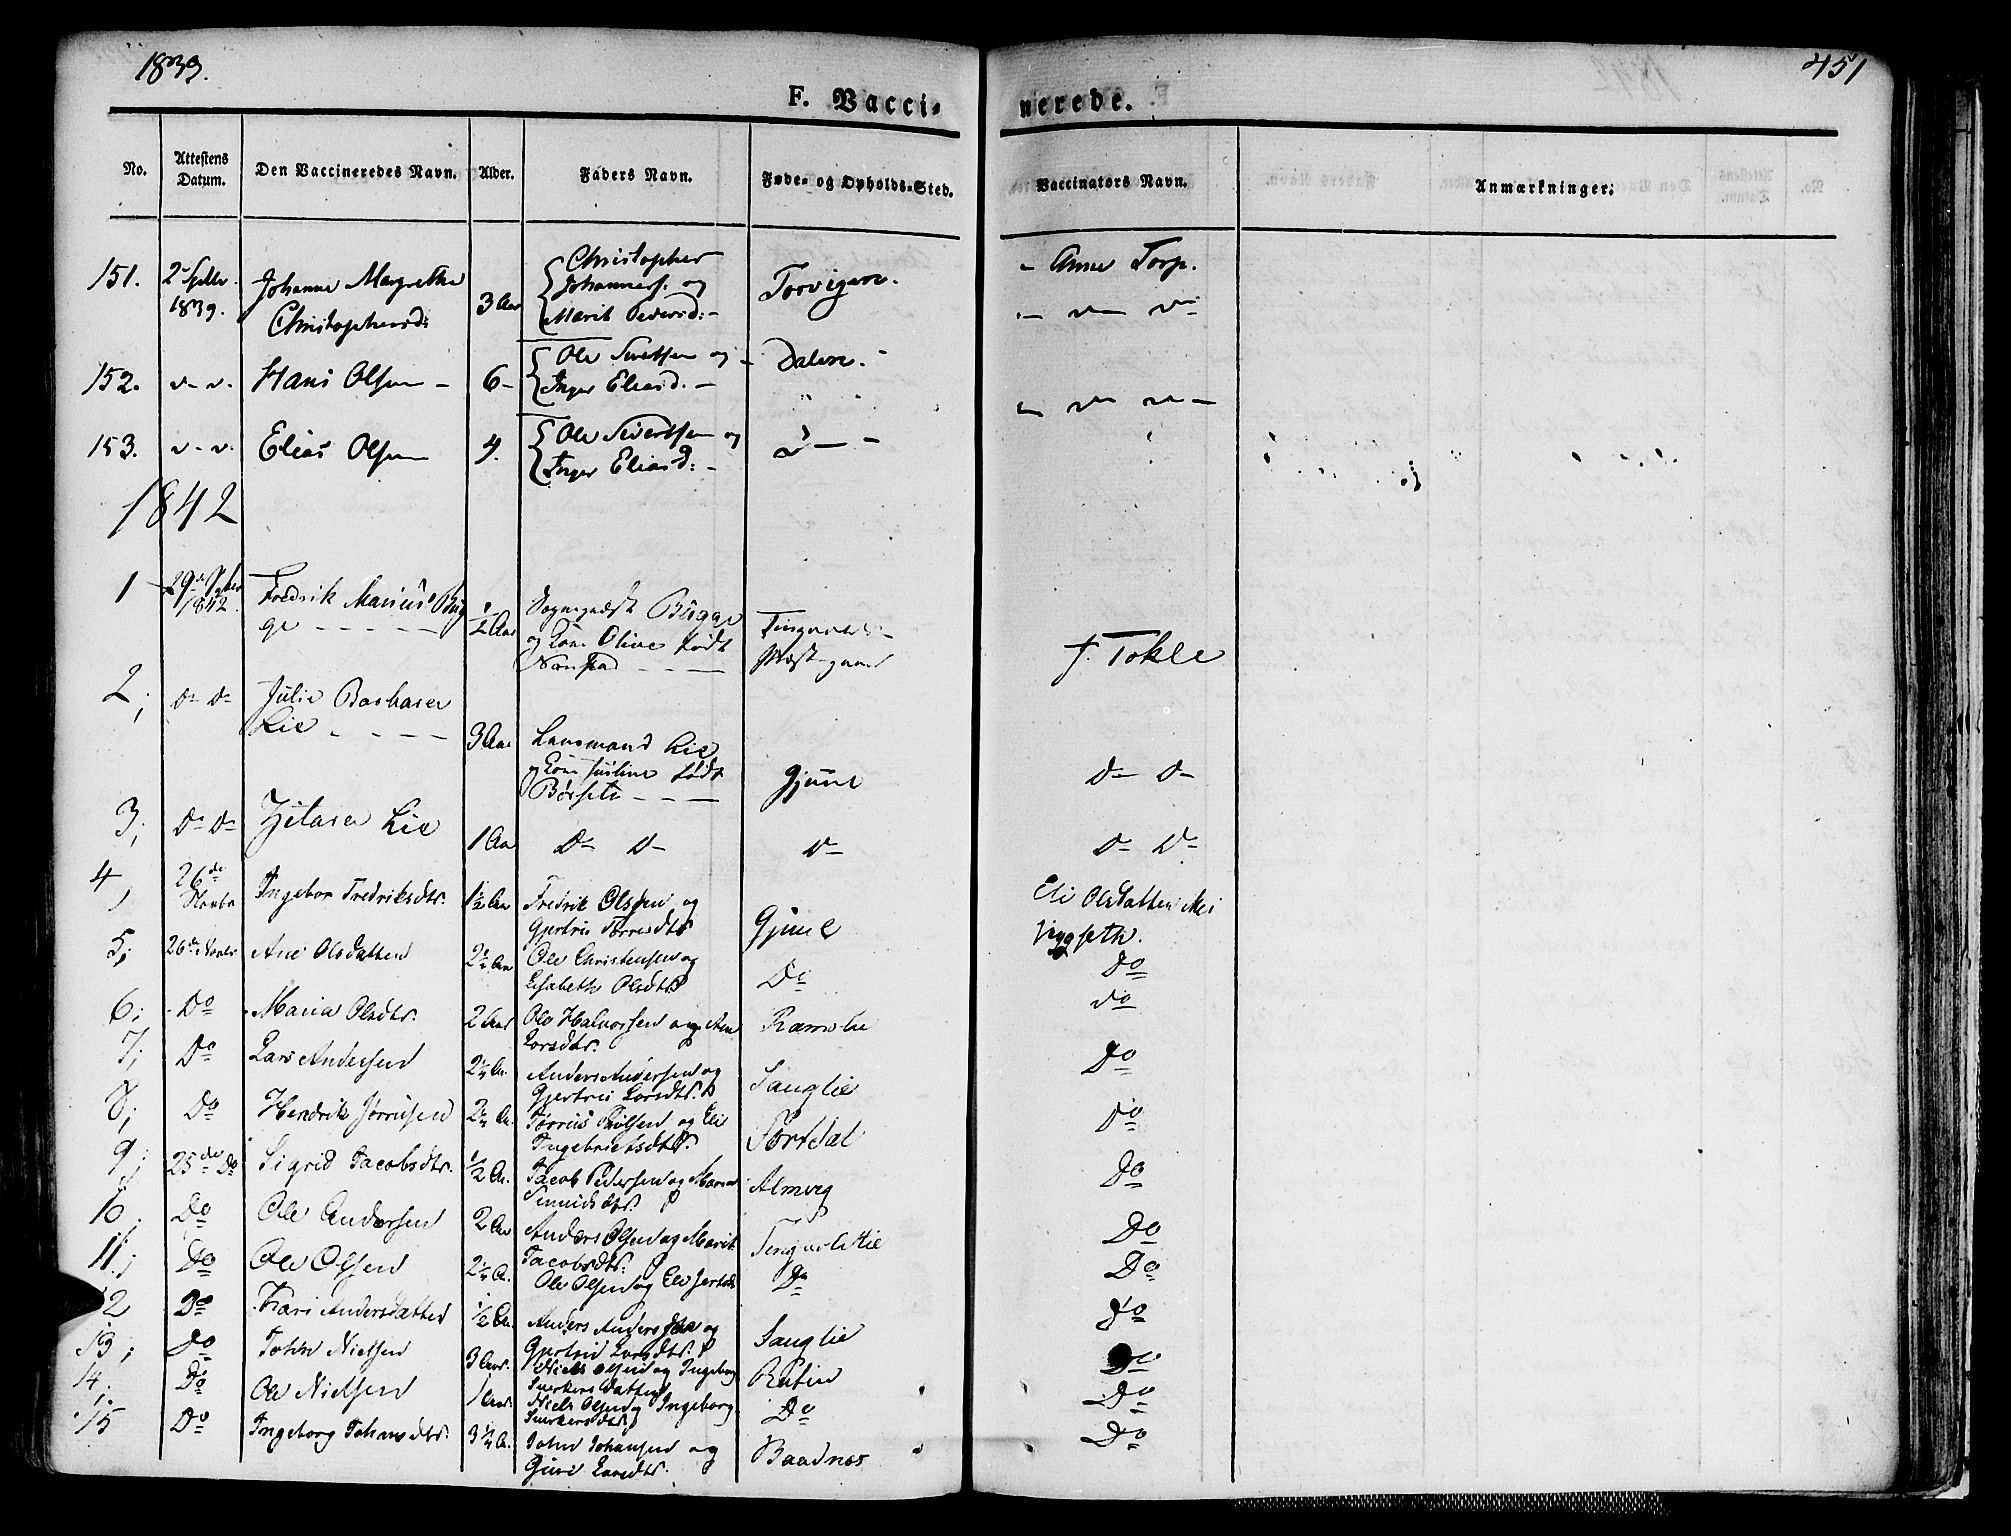 1839.
451
F. Vacci- nerede.
No. Attestens Datum. Den Vaccineredes Navn. Alder. Faders Navn. Føde- og Opholds-Sted. Vaccinators Navn. Anmærkninger.
151. 2 1839. Johanne Margrethe Christophersd: 3 Aar Christopher Johannes: og Marit Pedersd: Torvigen. Anne Torp.
152. Hans Olsen 6 Ole Sivertsen og Inger Eliasd. Dalen.
153. Elias Olsen 4. Ole Sivertsen og Inger Eliasd:
1842
1 29de 1842 Fredrik Marius Bugge ½ Aar Sognepræst Bugge og Kone Olive født Tingvold Præstegaard J. Tokle
2, Do Do Julie Barbara Lie 3 Aar Lensmand Lie og Kone født Børseth Gjiml Do Do
3, Do Do Lie 1 Aar Do Do Do Do Do
4, 26de Novbr Ingebor Fredriksdtr. 1½ Aar Fredrik Olssen og Gjertru Gjiml Eli Olsdatter
5; 26de Novbr Ane Olsdatter 2½ Aar Ole Christensen og Elsabeth Olsdtr Do Do
6; Do Maria Olsdtr. 2 Aar Ole Halvorsen og Ane Larsdtr. Ramslie do
7; Do Lars Andersen 2¼ Ar. Anders Andersen og Gjertru Larsdtr. Sanglie Do
8; Do Hendrik Jørrisen 2¼ Ar. og Eli Ingebrietsdtr. Do
9; 25de Do Sigrid Jacobsdtr. ½ Ar. Jacob Pedersen og Almveg Do
10; Do Ole Andersen 2 Aar Anders Olsen og Marit Jacobsdtr. Do
11; Do Ole Olsen 2¼ A. Ole Olsen og Eli Do Do
12 Do Kari Andersdatter ½ Ar. Anders Andersen og Gjertrud Larsdtr. Sanglie Do
13; Do John Nielsen 3 Aar. Niels Olsen og Ingeborg Do
14, Do Ole Nielsen 1 Aar. Niels Olsen og Ingeborg Do Do
15 Do Ingeborg Johnsdtr. 3¼ A. John Johansen og Guri Larsdtr. Baadnes Do